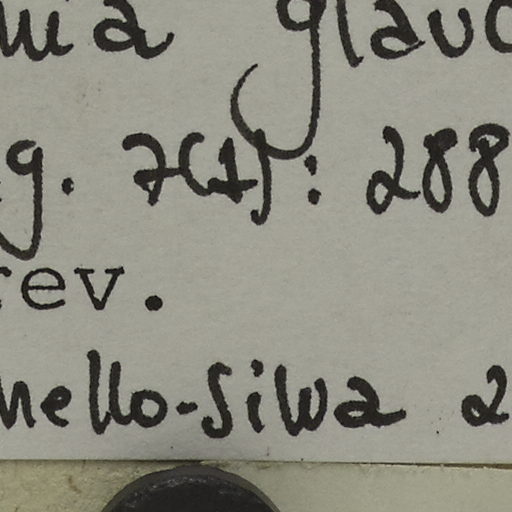 nia glauc
g. 7(1): 288
rev.
nello-Silva 2